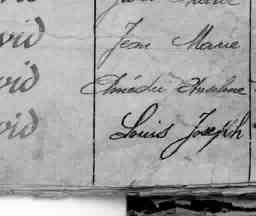 vid Jean Marie
vid Amédée Anselme
vid Louis Joseph